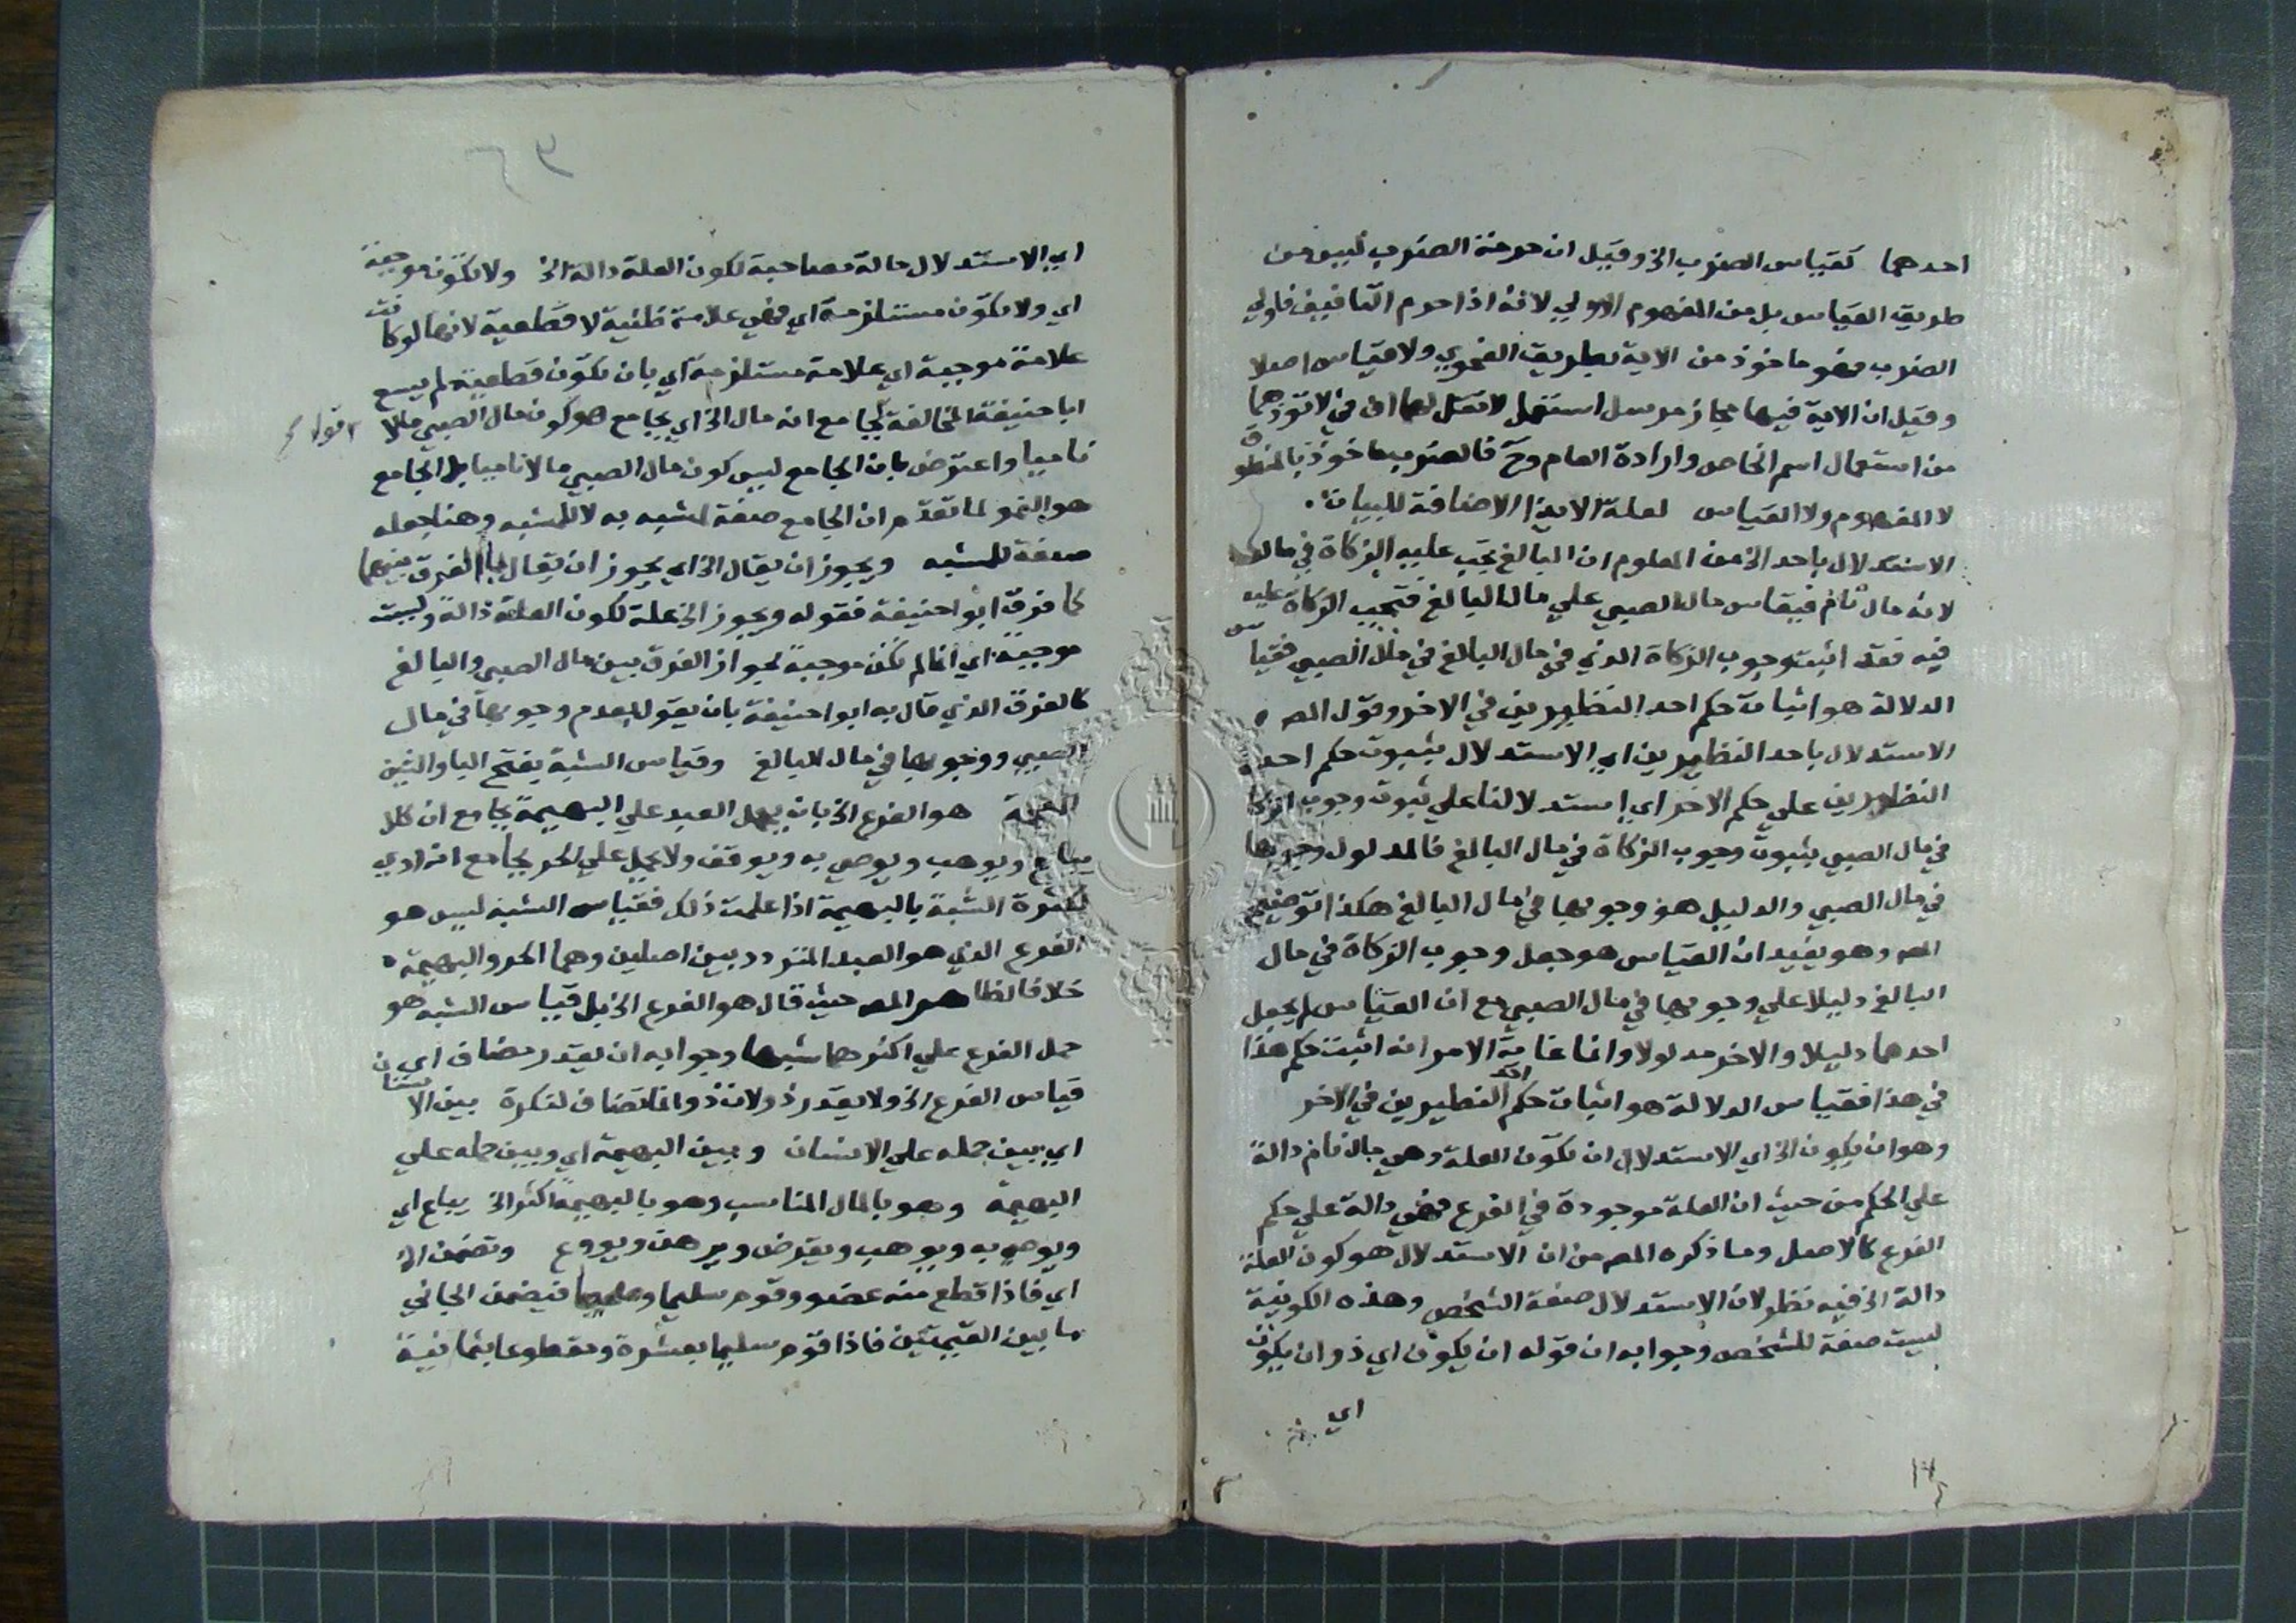 احدهما كقياس الضرب الخ وقيل ان حرمة الضرب ليس من
طريق القياس بل من المفهوم الاولي لانه اذا حرم التافيف فاولي
الضرب فهو ماخوذ من الاية بطريق الفحوي ولا قياس اصلا
وقيل ان الاية فيها مجاز مرسل استعمل لا تقل لهما اف في لا توذهما
من استعمال اسم الخاص وارادة العام وح فالضرب ماخوذ بالمنطوق
لا المفهوم ولا القياس لعلة الايذا الاضافة للبيان
الاستدلال باحد الخ من المعلوم ان البالغ تجب عليه الزكاة في ماله
لانه مال نام فيقاس مال الصبي علي مال البالغ فتجب الزكاة عليه
فيه فقد اثبت وجوب الزكاة الذي في مال البالغ في مال الصبي فقياس
الدلالة هو اثبات حكم احد النظيرين في الاخر وقول المص
الاستدلال باحد النظيرين اي الاستدلال بثبوت حكم احد
النظيرين علي حكم الاخر اي استدلالنا علي ثبوت وجوب الزكا
في مال الصبي بثبوت وجوب الزكاة في مال البالغ فالمدلول وجوبها
في مال الصبي والدليل هو وجوبها في مال البالغ هكذا توضيح
المص وهو يفيد ان القياس هو جعل وجوب الزكاة في مال
البالغ دليلا علي وجوبها في مال الصبي مع ان القياس لم يجعل
احدهما دليلا والاخر مدلولا وانما غاية الامر انه اثبت حكم هذا
في هذا فقياس الدلالة هو اثبات حكم احد النظيرين في الاخر
وهو ان يكون الخ اي الاستدلال ان تكون العلة وهي مال نام دالة
علي الحكم من حيث ان العلة موجودة في الفرع فهي دالة علي حكم
الفرع كالاصل وما ذكره المص من ان الاستدلال هو كون العلة
دالة الخ فيه نظر لان الاستدلال صفة الشخص وهذه الكونية
ليست صفة للشخص وجوابه ان قوله ان يكون اي ذو ان يكون
اي
اي الاستدلال حالة مصاحبة لكون العلة دالة الخ ولا تكون موجبة
اي ولا تكون مستلزمة اي فهي علامة ظنية لا قطعية لانها لو كانت
علامة موجبة اي علامة مستلزمة اي بان تكون قطعية لم يسع
ابا حنيفة المخالفة بجامع انه مال الخ اي بجامع هو كون مال الصبي مالا
ناميا واعترض بان الجامع ليس كون مال الصبي مالا ناميا بل الجامع
هو النمو لما تقدم ان الجامع صفة للمشبه به لا للمشبه وهنا جعله
صفة للمشبه ويجوز ان يقال الخ اي يجوز ان يقال بالفرق بينهما
كما فرق ابو حنيفة فقوله ويجوز الخ علة لكون العلة دالة وليست
موجبة اي انما لم تكن موجبة لجواز الفرق بين مال الصبي والبالغ
كالفرق الذي قال به ابو حنيفة بان يقول بعدم وجوبها في مال
الصبي ووجوبها في مال البالغ وقياس الشبه بفتح البا والشين
هو الفرع الخ بان يحمل العبد علي البهيمة بجامع ان كلا
يباع ويوهب ويوصي به ويوقف ولا يحمل علي الحر بجامع انه ادمي
لكثرة الشبه بالبهيمة اذا علمت ذلك فقياس الشبه ليس هو
الفرع الذي هو العبد المتردد بين اصلين وهما الحر والبهيمة
خلافا لظاهر المص حيث قال هو الفرع الخ بل قياس الشبه هو
حمل الفرع علي اكثرهما شبها وجوابه ان يقدر مضاف اي
قياس الفرع الخ ولا يقدر ذو لان ذو انما تضاف لنكرة بين الانسان
اي بين حمله علي الانسان وبين البهيمة اي وبين حمله علي
البهيمة وهو بالمال المناسب وهو بالبهيمة اكثر الخ يباع اي
ويوصي به ويوهب ويقرض ويرهن ويودع وتضمن الخ
اي فاذا قطع منه عضو وقوم سليما فيضمن الجاني
ما بين القيمتين فاذا قوم سليما بعشرة ومقطوعا بثمانية